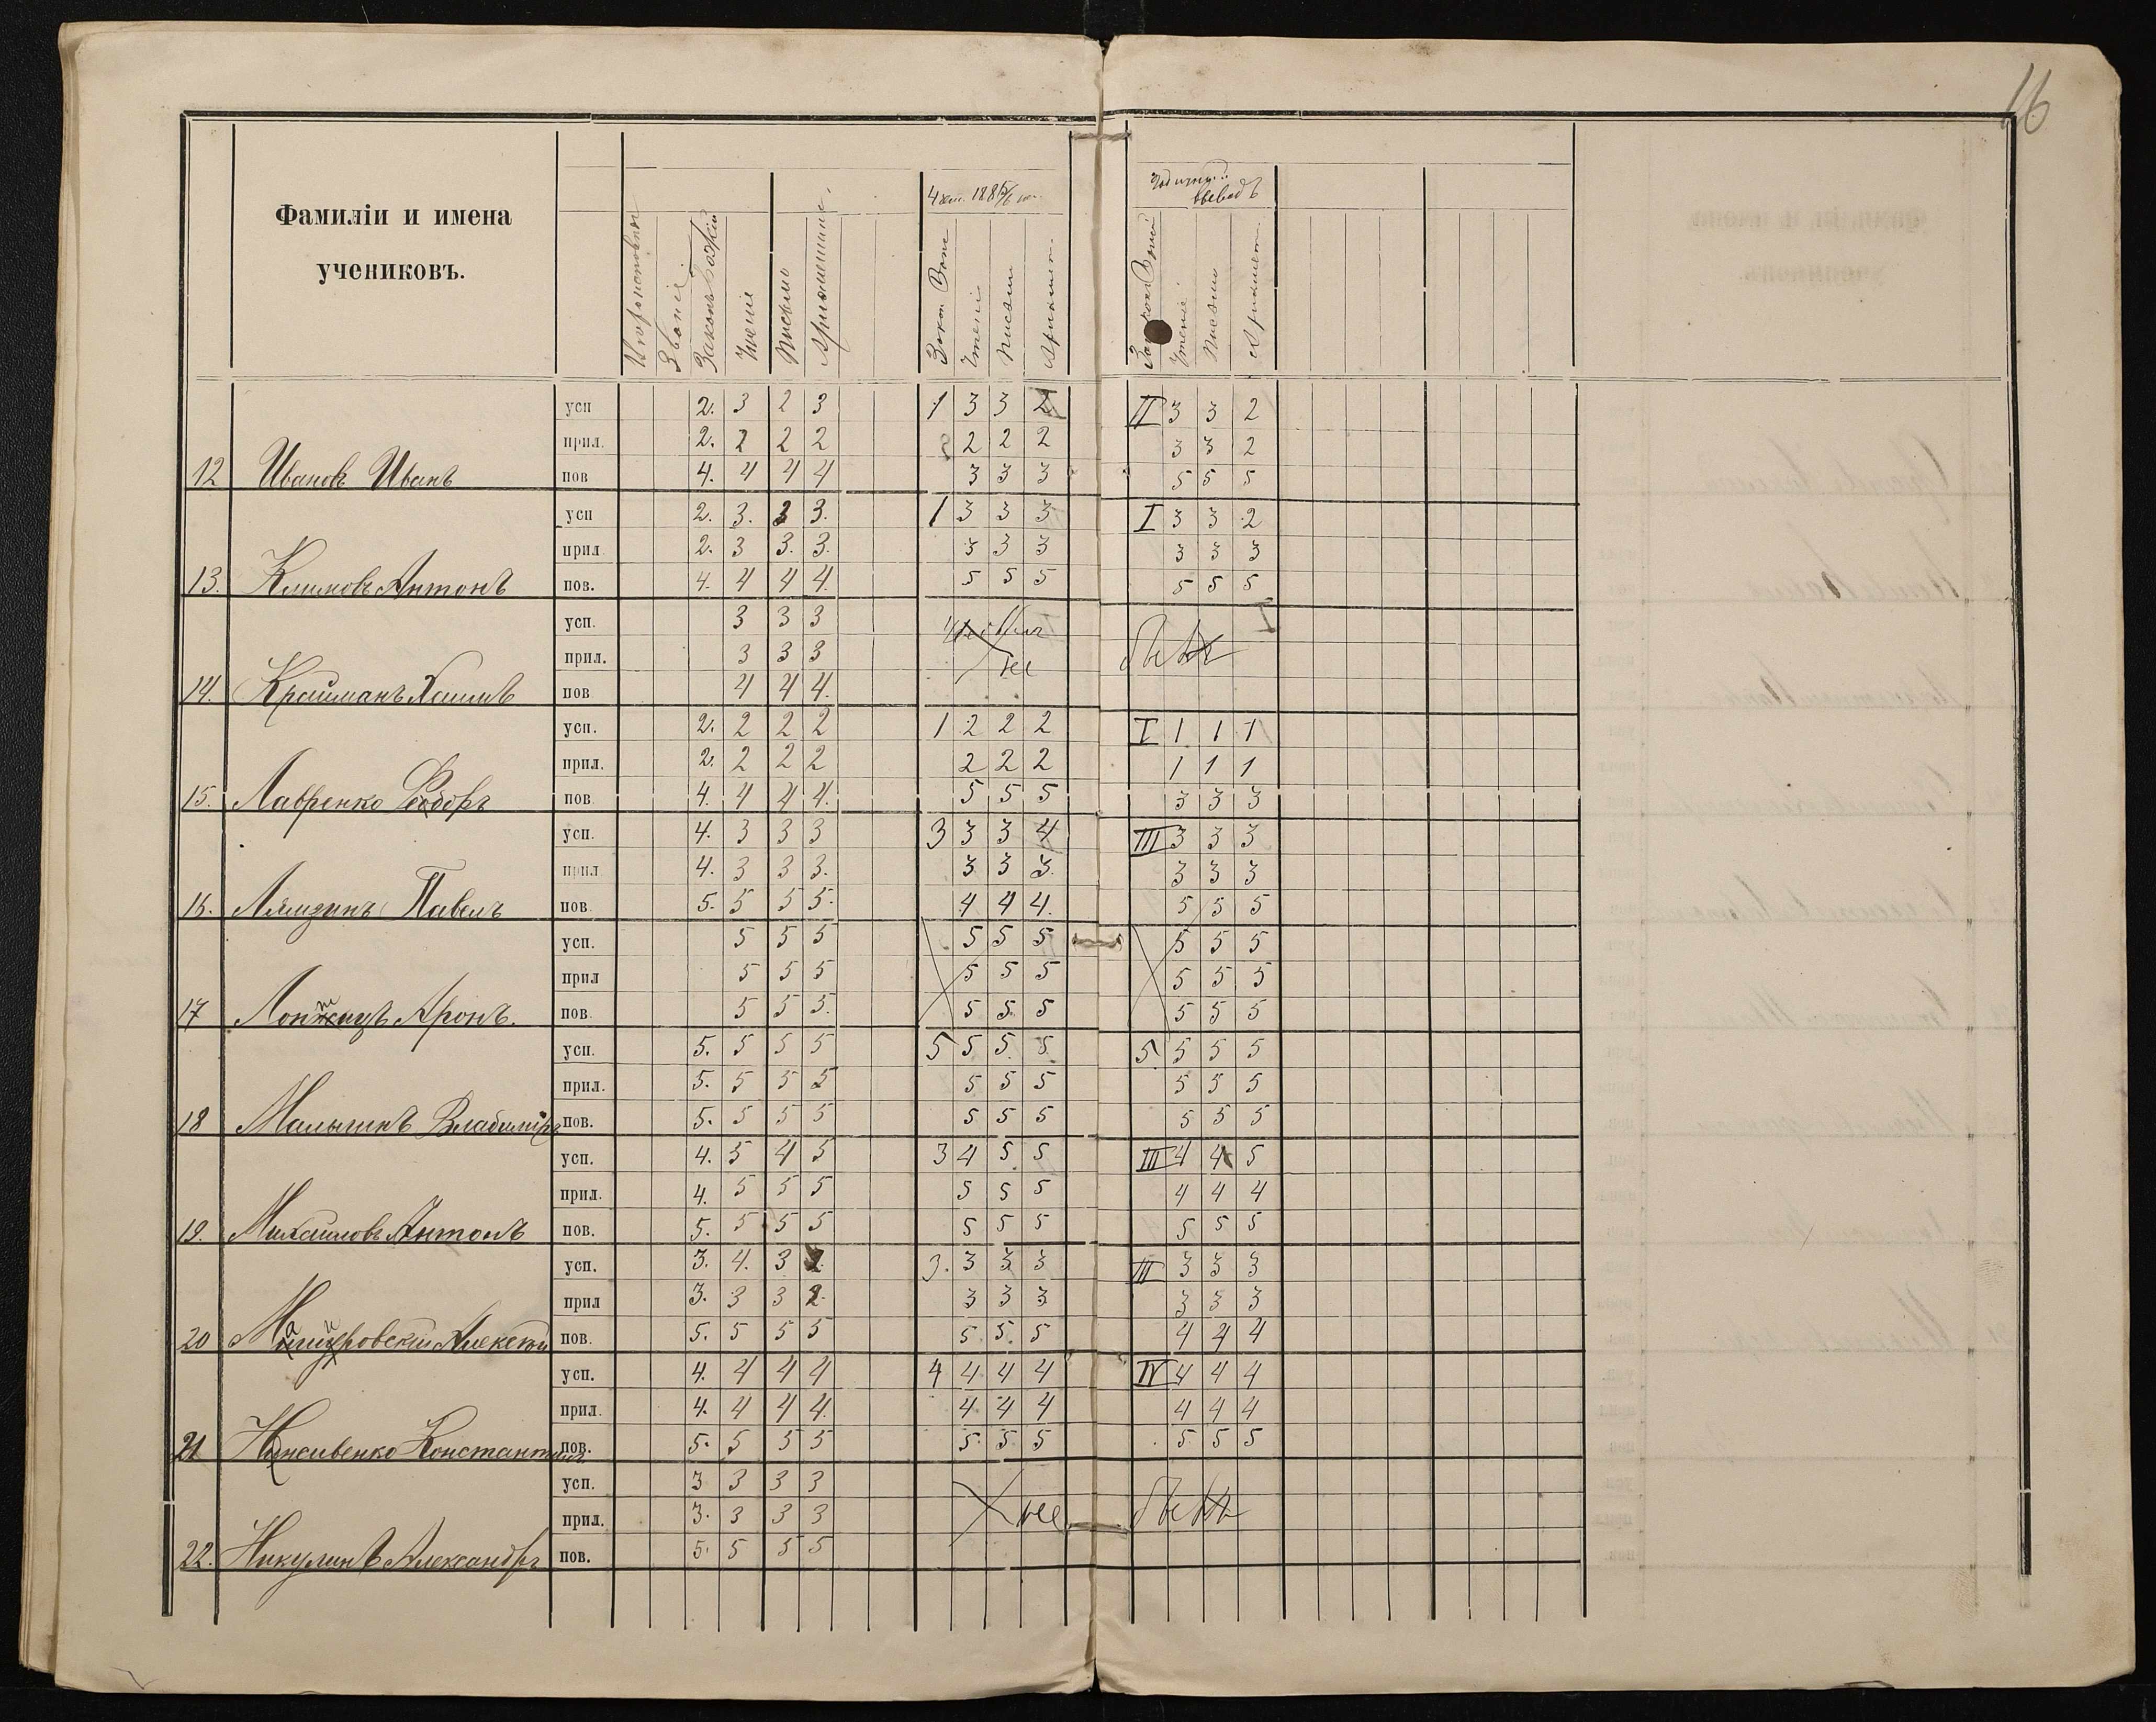 16
Фамиліи и имена
учениковъ.
Вѣроисповѣд.
Званіе
Законъ Божій
Чтеніе
Письмо
Ариѳметика
4 чет. 1885/6 г.
Закон Бож
Чтеніе
Письм
Ариѳмет.
Годичный
выводъ
Закон Божій
Чтеніе
Письм
Ариѳмет.
усп 2. 3 2 3 1 3 3 2 II 3 3 2
прил. 2. 2 2 2 2 2 2 3 3 2
12 Ивановъ Иванъ пов 4. 4 4 4 3 3 3 5 5 5
усп 2. 3. 3 3. 1 3 3 3 I 3 3 2
прил 2. 3 3. 3. 3 3 3 3 3 3
13. Климовъ Антонъ пов. 4. 4 4 4. 5 5 5 5 5 5
усп. 3 3 3
прил. 3 3 3 не былъ
14. Крайманъ Хаимъ пов 4 4 4.
усп. 2. 2 2 2 1 2 2 2 I 1 1 1
прил. 2. 2 2 2 2 2 2 1 1 1
15. Лавренко Ѳедоръ пов 4. 4 4 4. 5 5 5 3 3 3
усп. 4. 3 3 3 3 3 3 4 III 3 3 3
прил 4. 3 3 3. 3 3 3. 3 3 3
16. Лямзинъ Павелъ пов. 5. 5 5 5. 4 4 4. 5 5 5
усп. 5 5 5 5 5 5 5 5 5
прил 5 5 5 5 5 5 5 5 5
17 Аронъ. пов. 5 5 5. 5 5. 5 5 5 5
усп. 5. 5 5 5 5 5 5. 5. 5. 5 5 5
прил. 5. 5 5 5 5 5 5 5 5 5
18 Малыгинъ Владиміръ пов. 5. 5 5 5 5 5 5 5 5 5
усп. 4. 5 4 5 3 4 5 5 III 4 4 5
прил. 4. 5 5 5 5 5 5 4 4 4
19. Михаиловъ Антонъ пов. 5. 5 5 5 5 5 5 5 5 5
усп. 3. 4. 3 2. 3. 3 3 3 III 3 3 3
прил 3. 3 3 2. 3 3 3 3 3 3
20 Алексѣй пов. 5. 5 5 5 5. 5. 5 4 4 4
усп. 4. 4 4 4 4 4 4 4 IV 4 4 4
прил. 4. 4 4 4. 4 4 4 4 4 4
21 Константинъ пов. 5. 5 5 5 5. 5. 5 5 5 5
усп. 3 3 3 3
прил. 3. 3 3 3 не былъ
22. Никулинъ Александръ пов. 5. 5 5 5